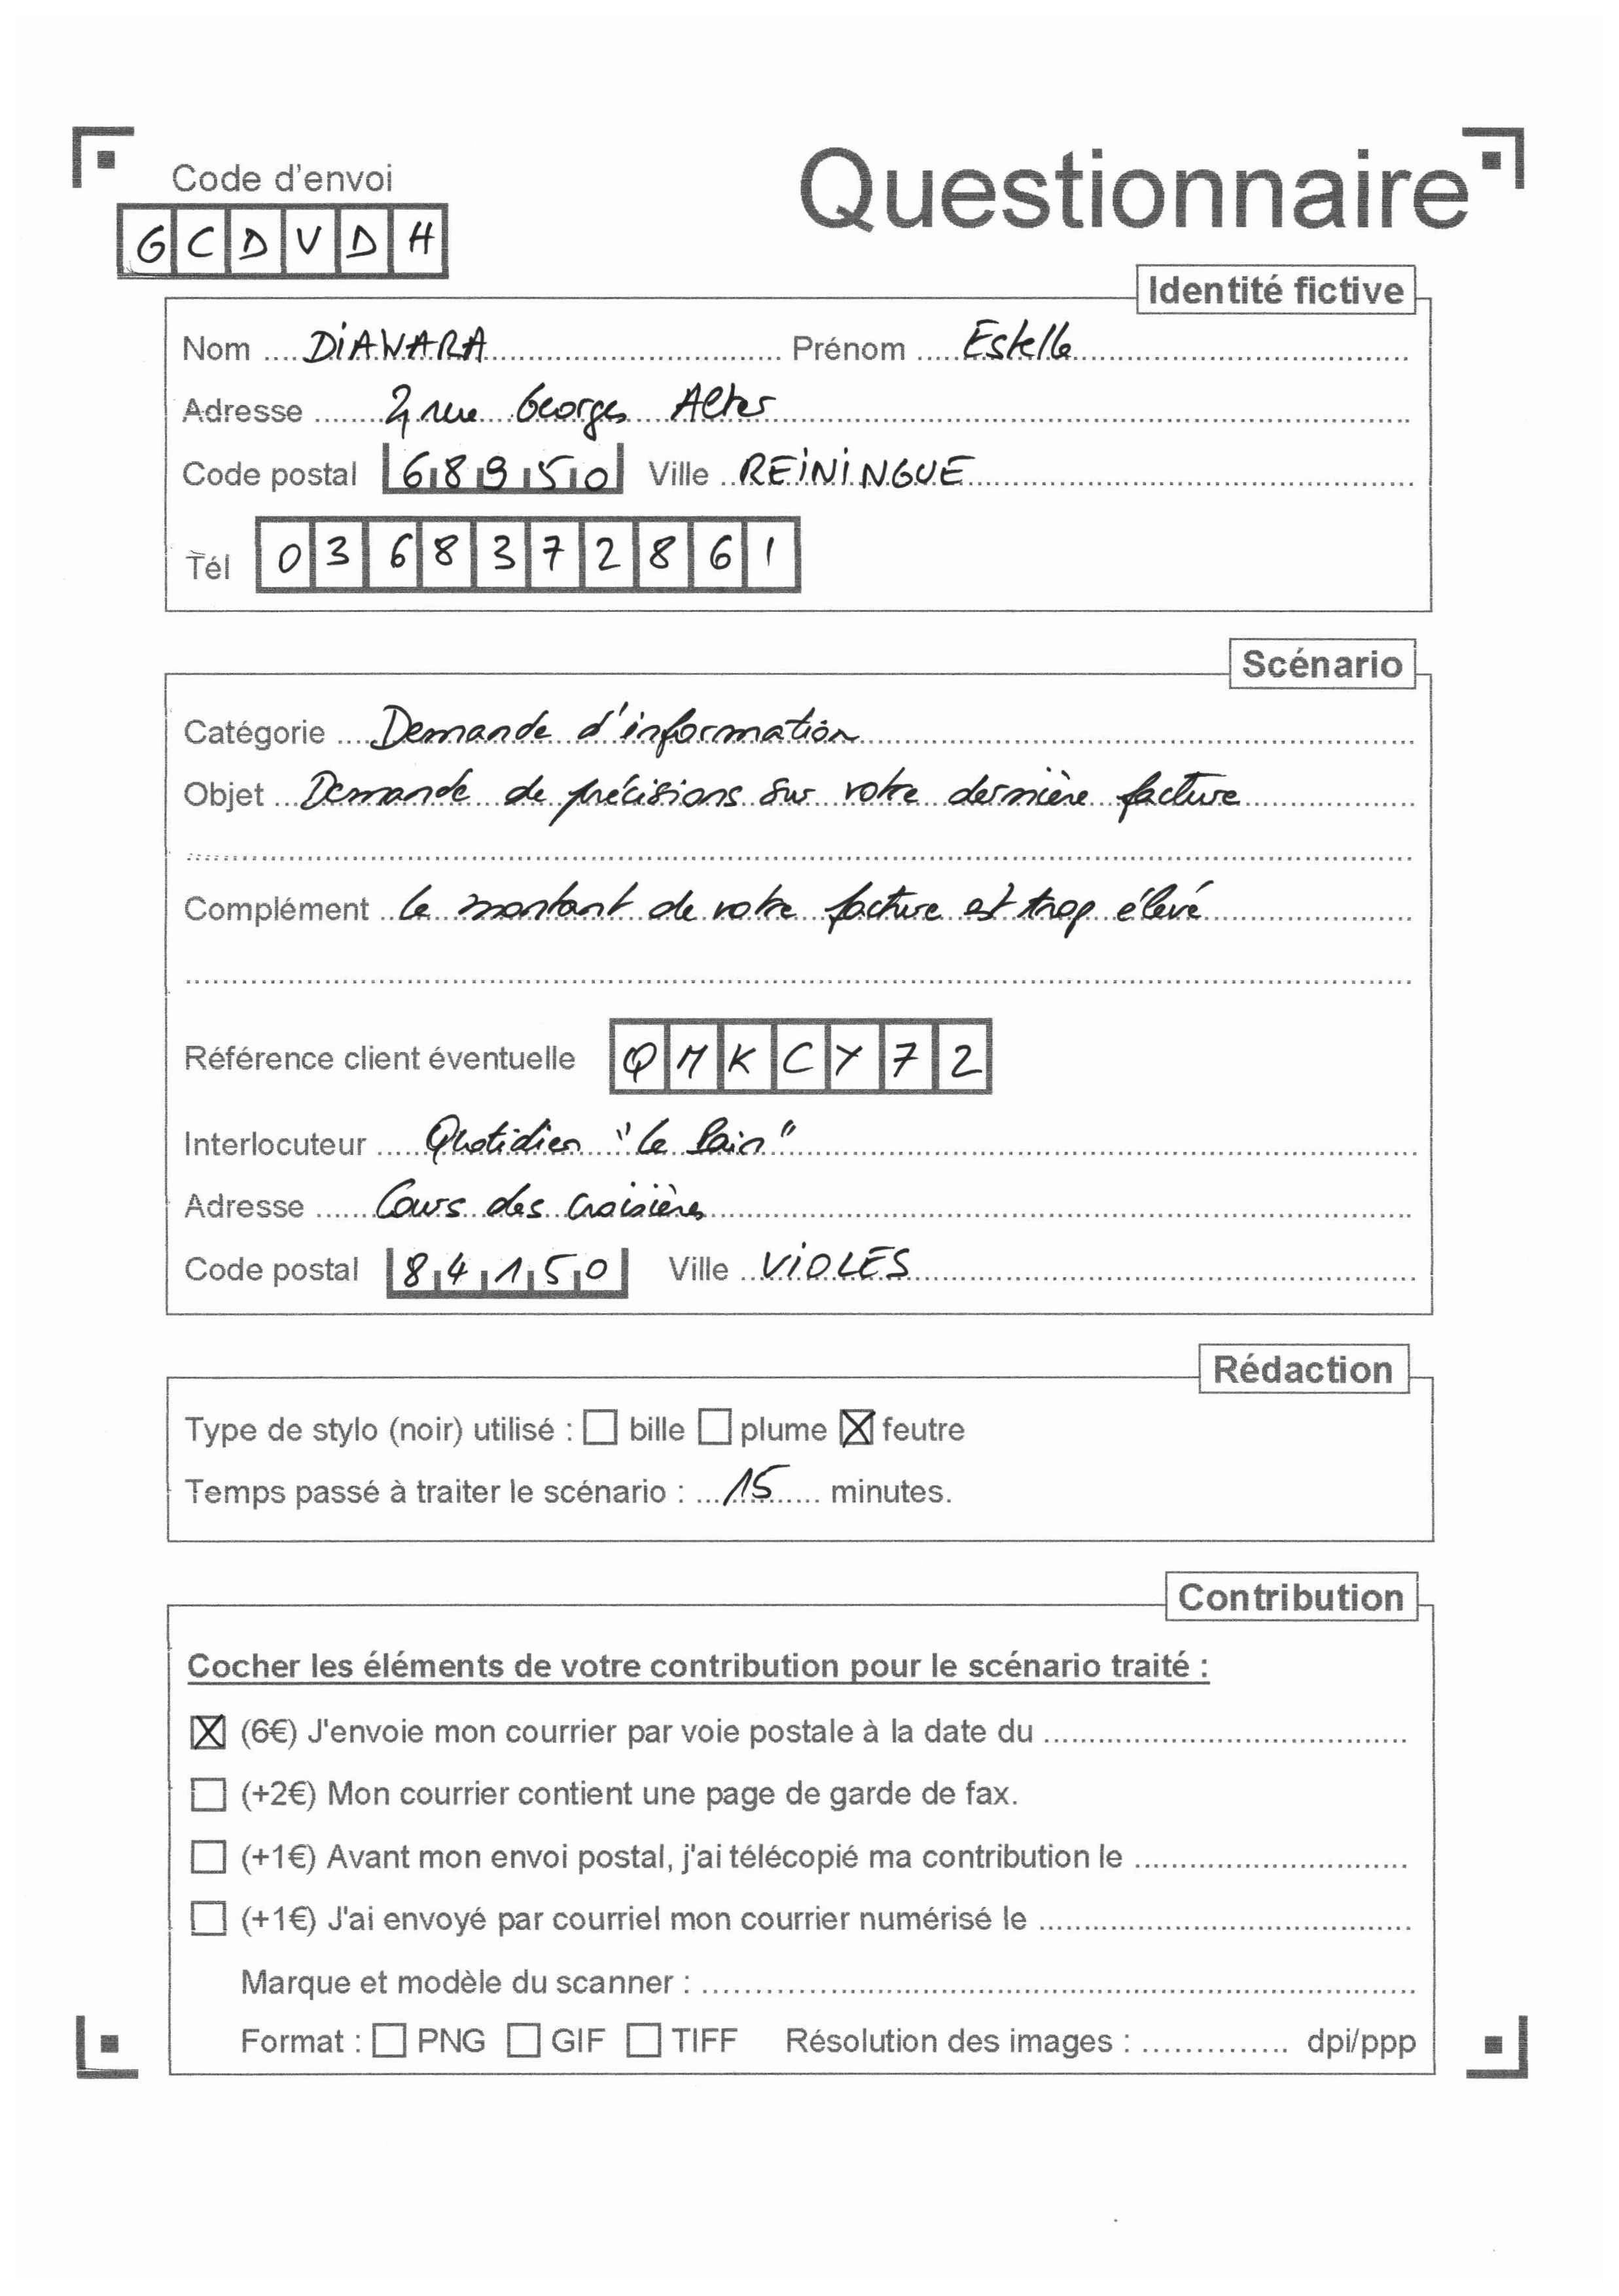 Code d'envoi
Questionnaire
GCDVDH
Identité fictive
Nom DIAWARA Prénom Estelle
Adresse 2, rue Georges Alter
Code postal 68950 Ville REININGUE
Tél 0368372861
Scénario
Catégorie Demande d'information
Objet Demande de précisions sur votre dernière facture
Complément le montant de votre facture est trop élevé
Référence client éventuelle QMKCY72
Interlocuteur Quotidien "Le
Adresse Cours des croisières
Code postal 84150 Ville VIOLES
Rédaction
Type de stylo (noir) utilisé : bille plume feutre
Temps passé à traiter le scénario : 15 minutes.
Contribution
Cocher les éléments de votre contribution pour le scénario traité :
(6€) J'envoie mon courrier par voie postale à la date du
(+2€) Mon courrier contient une page de garde de fax.
(+1€) Avant mon envoi postal, j'ai télécopié ma contribution le
(+1€) J'ai envoyé par courriel mon courrier numérisé le
Marque et modèle du scanner :
Format : PNG GIF TIFF Résolution des images : dpi/ppp